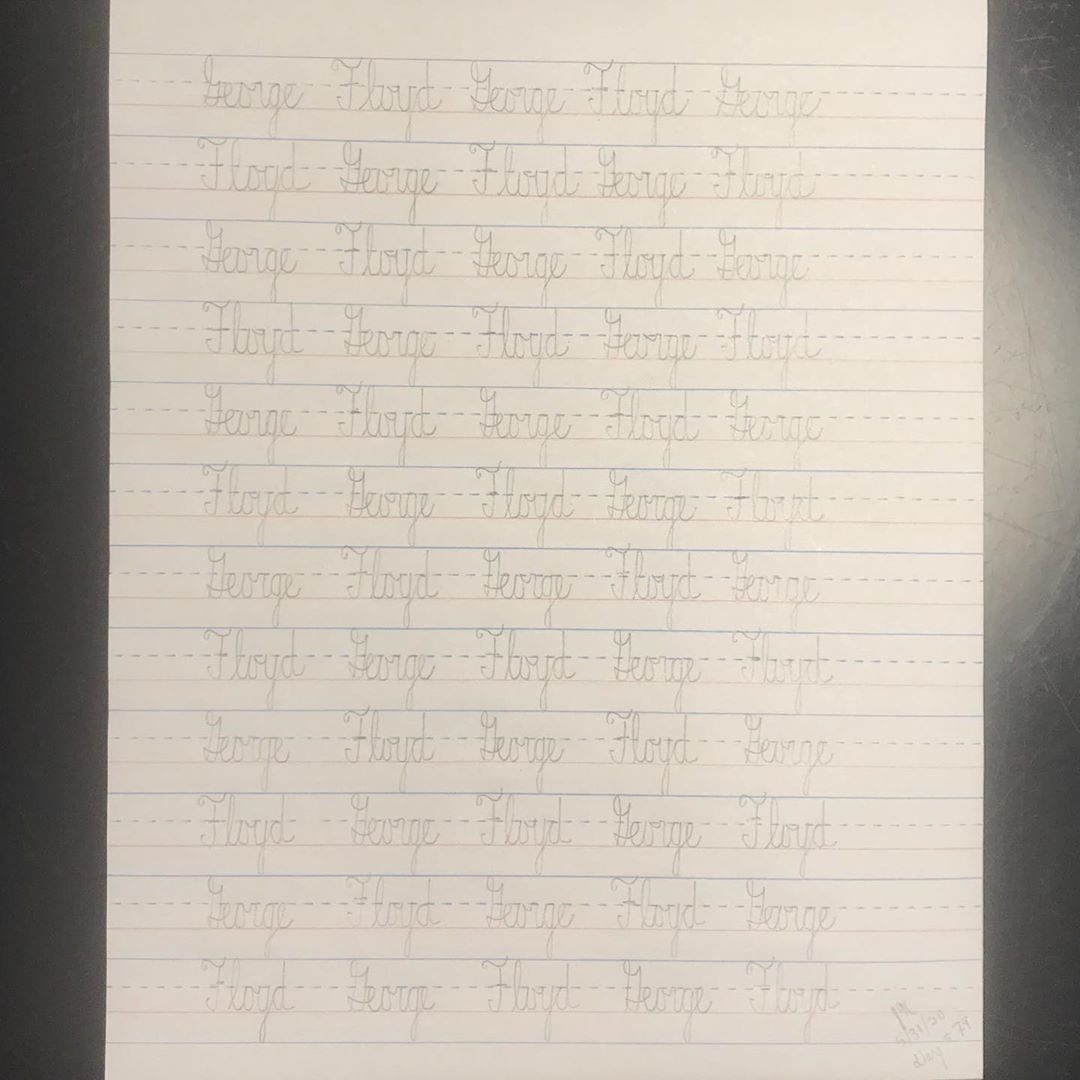 George Floyd George Floyd George
Floyd George Floyd George Floyd
George Floyd George Floyd George
Floyd George Floyd George Floyd
George Floyd George Floyd George
Floyd George Floyd George Floyd
George Floyd George Floyd George
Floyd George Floyd George Floyd
George Floyd George Floyd George
Floyd George Floyd George Floyd
George Floyd George Floyd George
Floyd George Floyd George Floyd
5/31/20
day